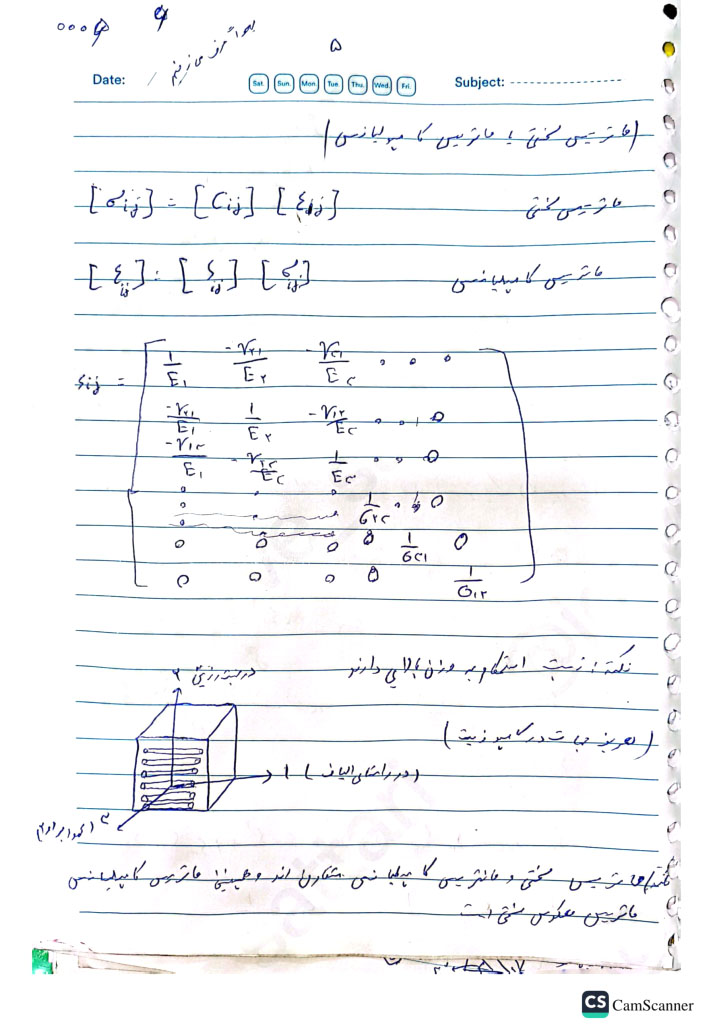 ۵
Date: Sat. Sun. Mon. Tue. Thu. Wed. Fri. Subject:
(ماتریس سختی یا ماتریس کامپلیانس)
[σij] = [Cij] [εij] ماتریس سختی
[εij] = [Sij] [σij] ماتریس کامپلیانس
Sij =
1/E₁ -ν₂₁/E₂ -ν₃₁/E₃ 0 0 0
-ν₂₁/E₁ 1/E₂ -ν₂₃/E₃ 0 0 0
-ν₁₃/E₁ -ν₂₃/E₃ 1/E₃ 0 0 0
0 0 0 1/G₂₃ 0 0
0 0 0 0 1/G₃₁ 0
0 0 0 0 1/G₁₂
نکته: نسبت استحکام به وزن بالایی دارند
۲
(تعریف جهات در کامپوزیت)
1 (در راستای الیاف)
۳
نکته/ ماتریس سختی و ماتریس کامپلیانس متقارن اند و همچنین ماتریس کامپلیانس
ماتریس معکوس سختی است
CS CamScanner